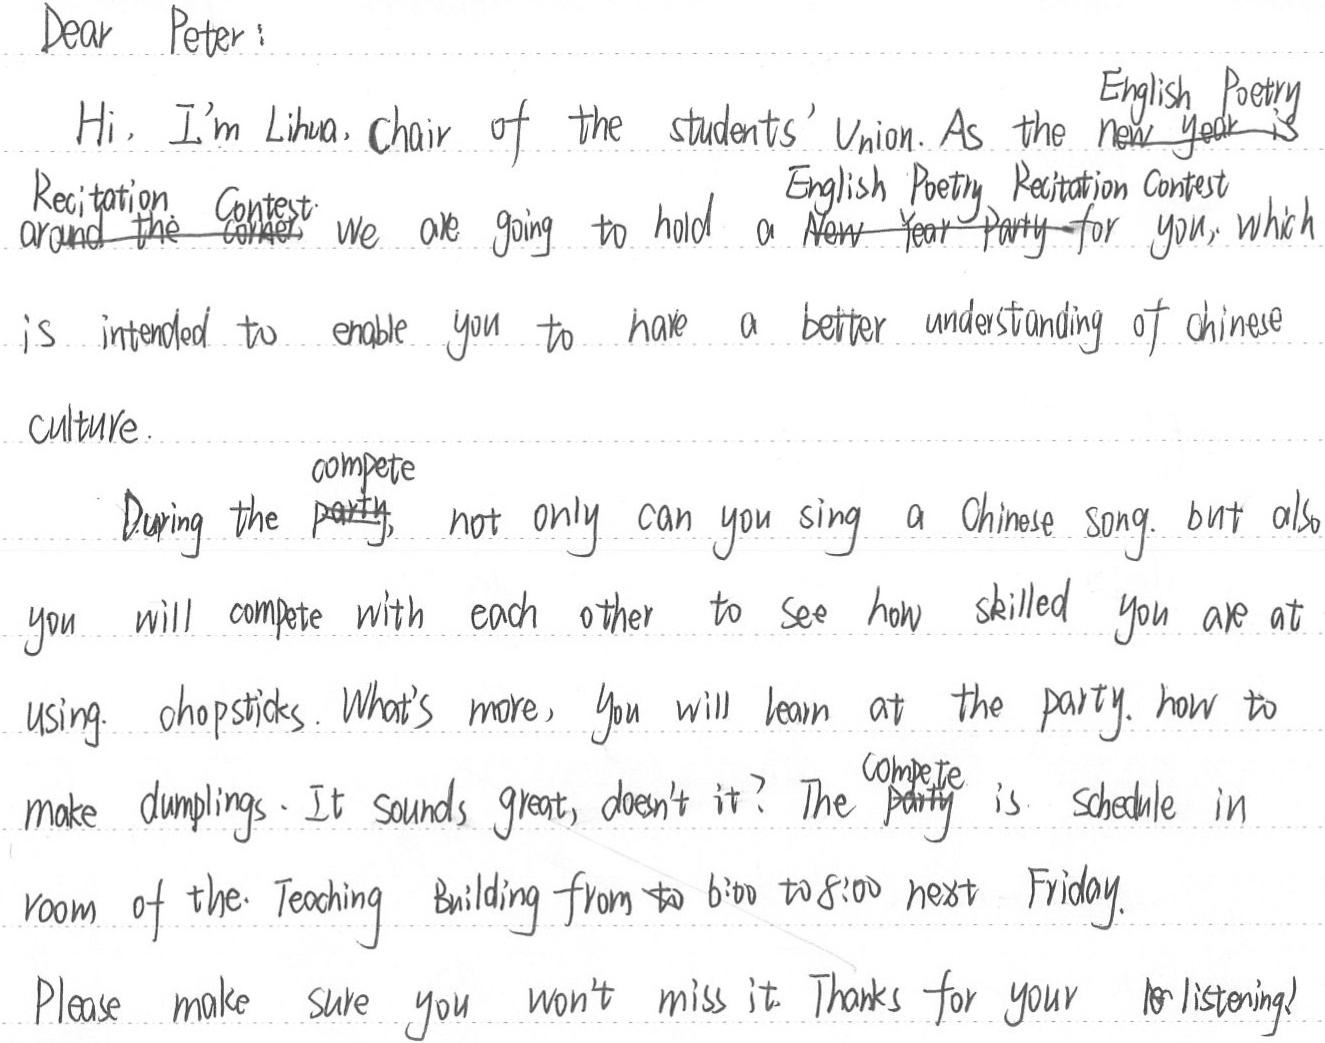 Dear Peter:
Hi, I'm Lihua, Chair of the students' Union. As the English Poetry
Recitation Contest. we are going to hold a English Poetry Recitation Contest for you, which
is intended to enable you to have a better understanding of chinese
culture.
During the compete not only can you sing a Chinese song. but also
you will compete with each other to see how skilled you are at
using. chopsticks. What's more, you will learn at the party. how to
make dumplings. It sounds great, doesn't it? The compete is schedule in
room of the. Teaching Building from 6:00 to 8:00 next Friday.
Please make sure you won't miss it. Thanks for your listening!